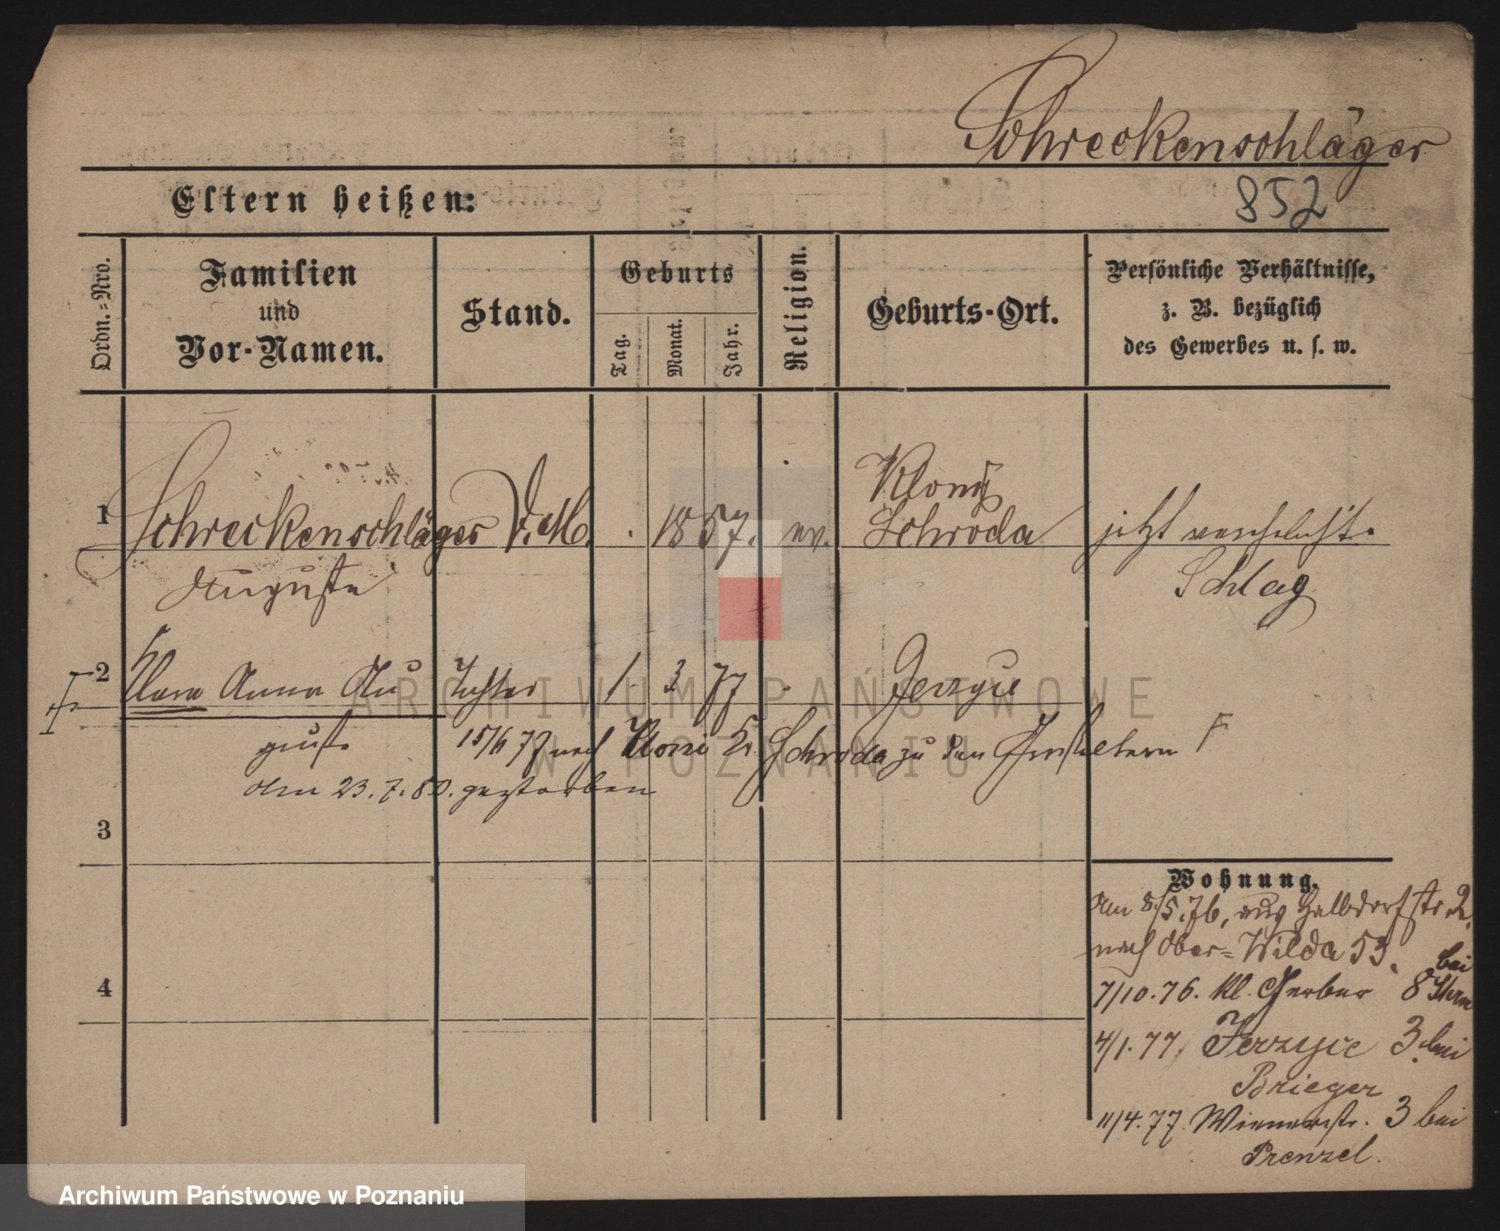 Schreckenschläger
852
Eltern heißen:
Ordn.-Nro.
Familien
und
Vor-Namen.
Stand.
Geburts
Tag.
Monat.
Jahr.
Religion.
Geburts-Ort.
Persönliche Verhältnisse,
z. B. bezüglich
des Gewerbes u. s. w.
Kloni
1 Schreckenschläger D.M. . 1857. ev. Schroda jetzt verehelichte
Auguste Schlag
2 Clara Anna Au Tochter 1. 3. 77 . Jerzyce
guste 15/6 77 nach Kloni Kr. Schroda zu den Großeltern F
am 23.7.80. gestorben
3
4
Wohnung.
Am 8/5.76, aus Halbdorfstr 2.
nach Ober-Wilda 53.
7/10.76. Kl. Gerber 8 bei
4/1.77, Jerzyce 3. bei
Brieger
11/4.77. Wienerstr. 3 bei
Prenzel.
ARCHIWUM PAŃSTWOWE
W POZNANIU
Archiwum Państwowe w Poznaniu